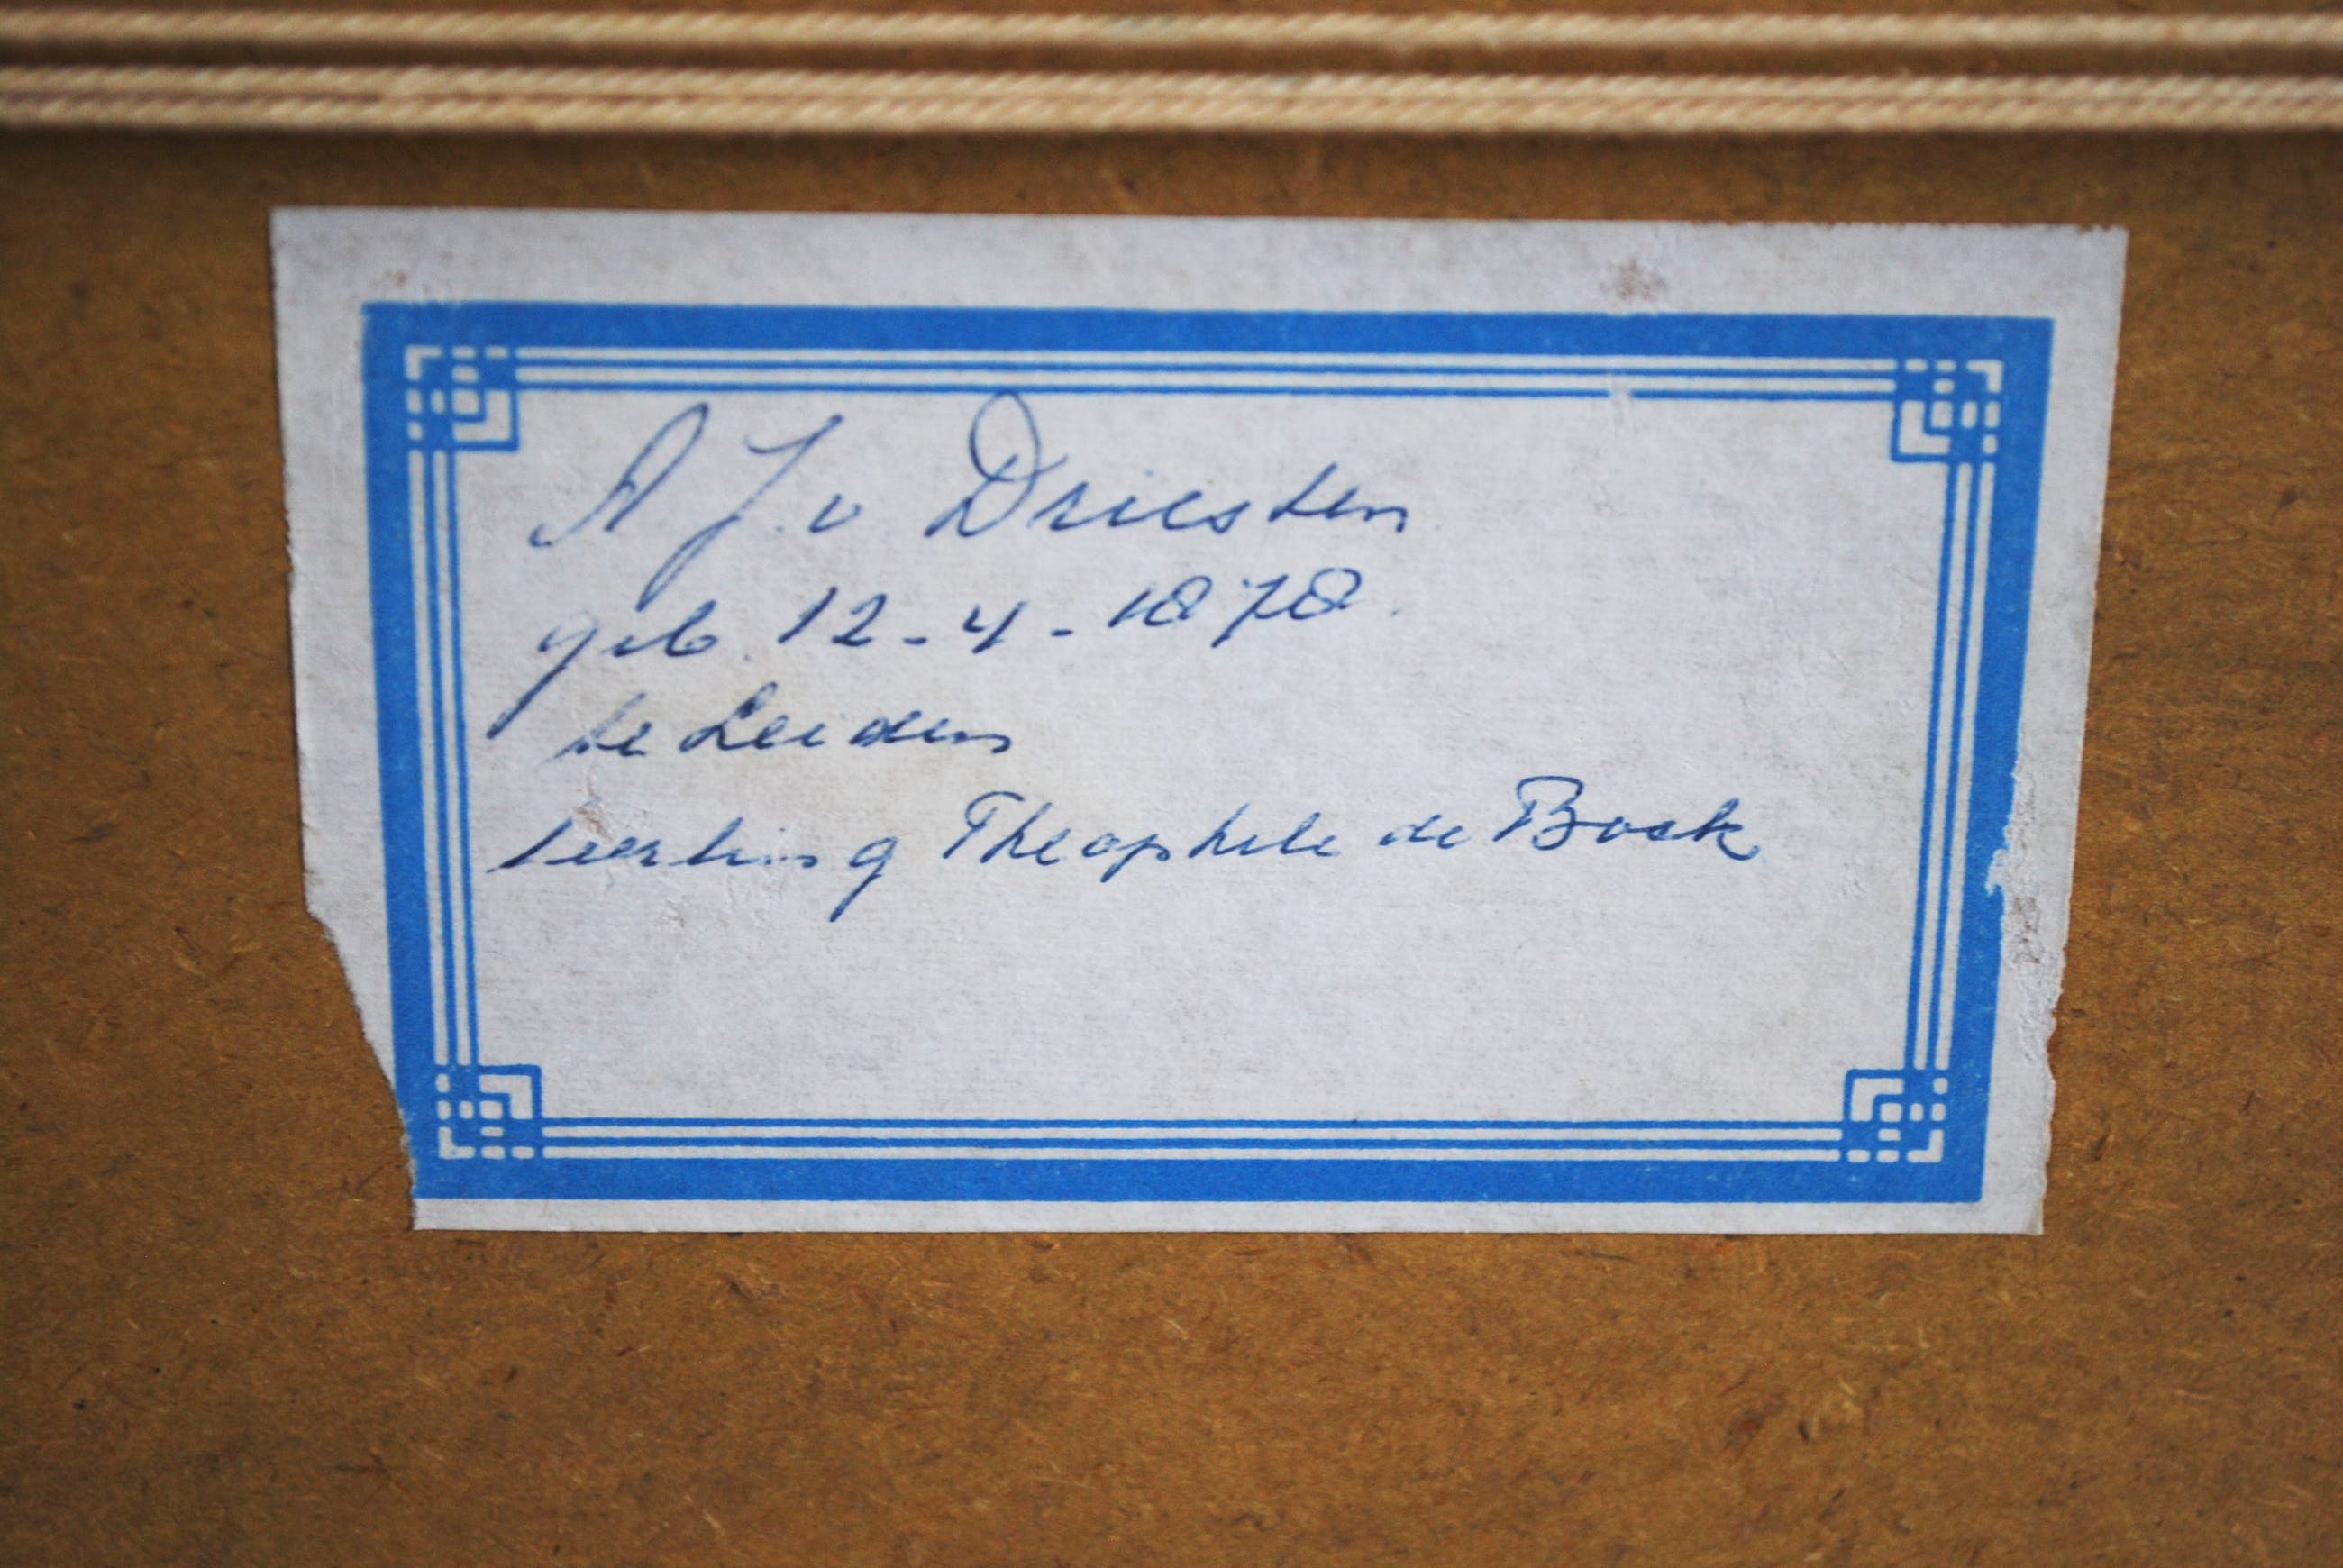 A J. v Driesten
geb. 12-4-1878.
te Leiden
leerling Theophile de Bock